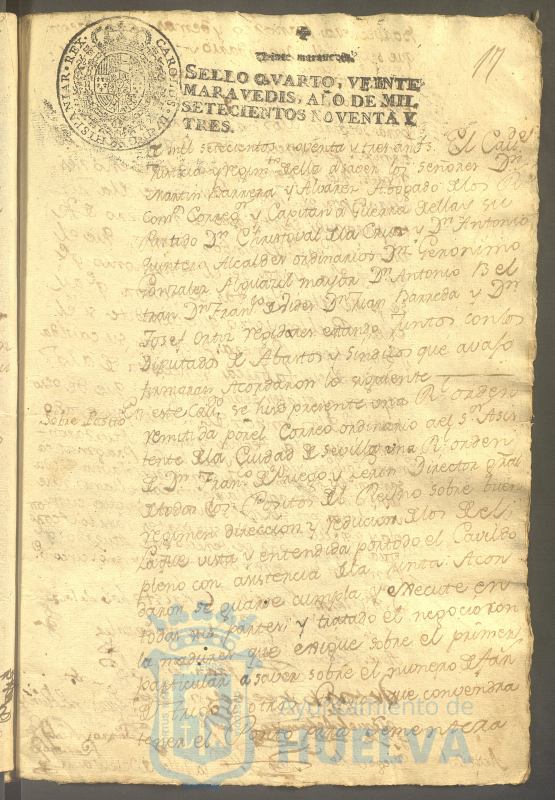 17
CAROLUS IV D G HISPANIAR REX
Veinte maravedis
SELLO QVARTO, VEINTE
MARAVEDIS, AÑO DE MIL
SETECIENTOS NOVENTA Y
TRES.
mil setecientos noventa y tres años. El Cab.do
Justicia y regim.to della a saver los señores Dn
Martin Barrera y Alvarez Abogado de los R.s
Cons.s Correg.r y Capitan a Guerra della y su
Partado Dn Christoval de la Cruz y Dn Antonio
Quintero Alcaldes ordinarios Dn Geronimo
Gonzalez Alguazil mayor Dn Antonio Bel
tran Dn Fran.co Dn Juan Barreda y Dn
Josef Ortiz rexidores estando juntos con los
Diputados de Abastos y Sindicos que avajo
firmaran Acordaron lo siguiente
Sobre Posito
En este Cav.do se hizo presente una R.l orden
remitida por el Correo ordinario del S.r Asis
tente de la Ciudad de Sevilla una R.l orden
de Dn Fran.co director gral
de todos los Positos del Reyno sobre buen
regimen direccion y reducion de los del
la que vista y entendida por todo el Cavildo
pleno con asistencia de la Junta Acor
daron se guarde cumpla y execute en
todas sus partes y tratado el negocio con
la madurez que exige sobre el primer
particular a saber sobre el numero de fan
de trigo y que convendra
tener el Posito para sementera
Ayuntamiento de
HUELVA